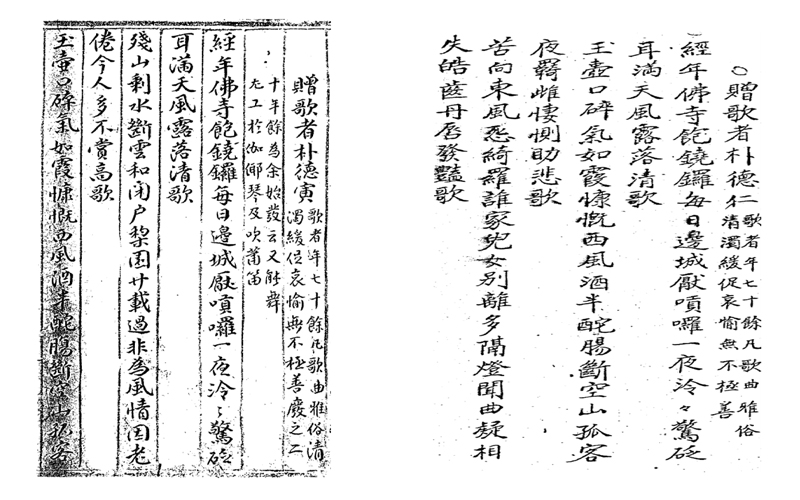 贈歌者朴德寅
歌者年七十餘凡歌曲雅俗清
濁緩促哀愉無不極善廢之二
十年餘為余始發云又能舞
尤工於伽倻琴及吹簫笛
經年佛寺飽鐃鑼每日邊城厭嗊囉一夜泠〻驚砭
耳滿天風露落清歌
殘山剩水斷雲和閉户棃園廿載過非為風情因老
倦今人多不賞高歌
玉壺口碎氣如霞慷慨西風酒半酡腸斷空山孤客
○贈歌者朴德仁
歌者年七十餘凡歌曲雅俗
清濁緩促哀愉無不極善
經年佛寺飽鐃鑼每日邊城厭嗊囉一夜泠々驚砭
耳滿天風露落清歌
玉壺口碎氣如霞慷慨西風酒半酡腸斷空山孤客
夜羇雌悽惻助悲歌
苦向東風惹綺羅誰家兒女別離多隔燈聞曲凝相
失皓齒丹唇發豔歌